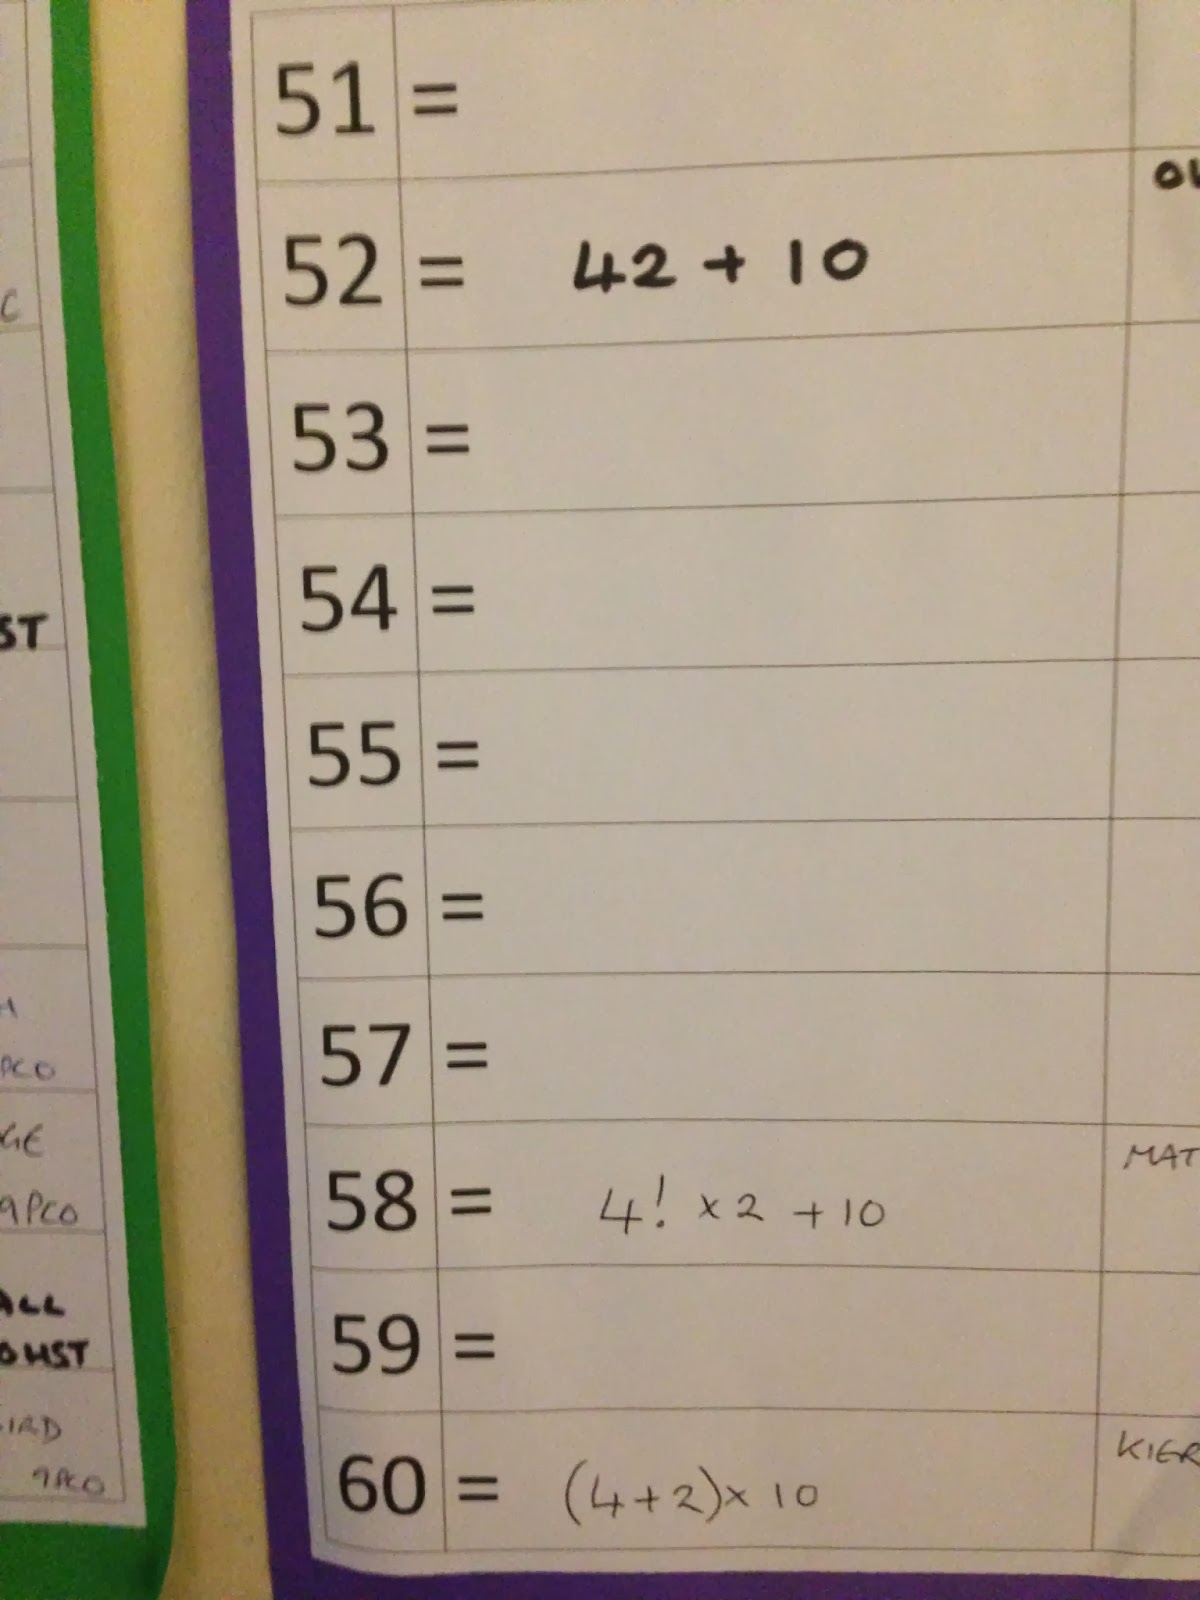 C
ST
PCO
GE
9PCO
ALL
HST
IRD
9PCO
51 =
52 = 42 + 10
53 =
54 =
55 =
56 =
57 =
58 = 4! × 2 + 10
MAT
59 =
60 = (4+2)× 10
KIER